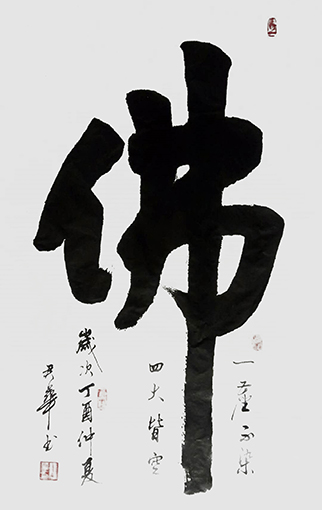 佛
一塵不染
四大皆空
歲次丁酉仲夏
華书